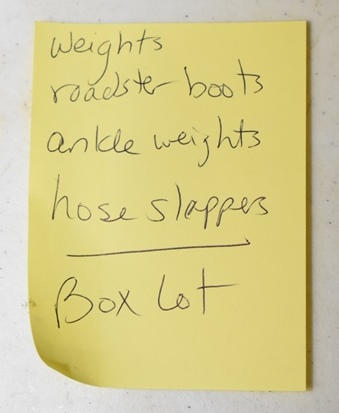 weights
roadster boots
ankle weights
hose slappers
Box Lot